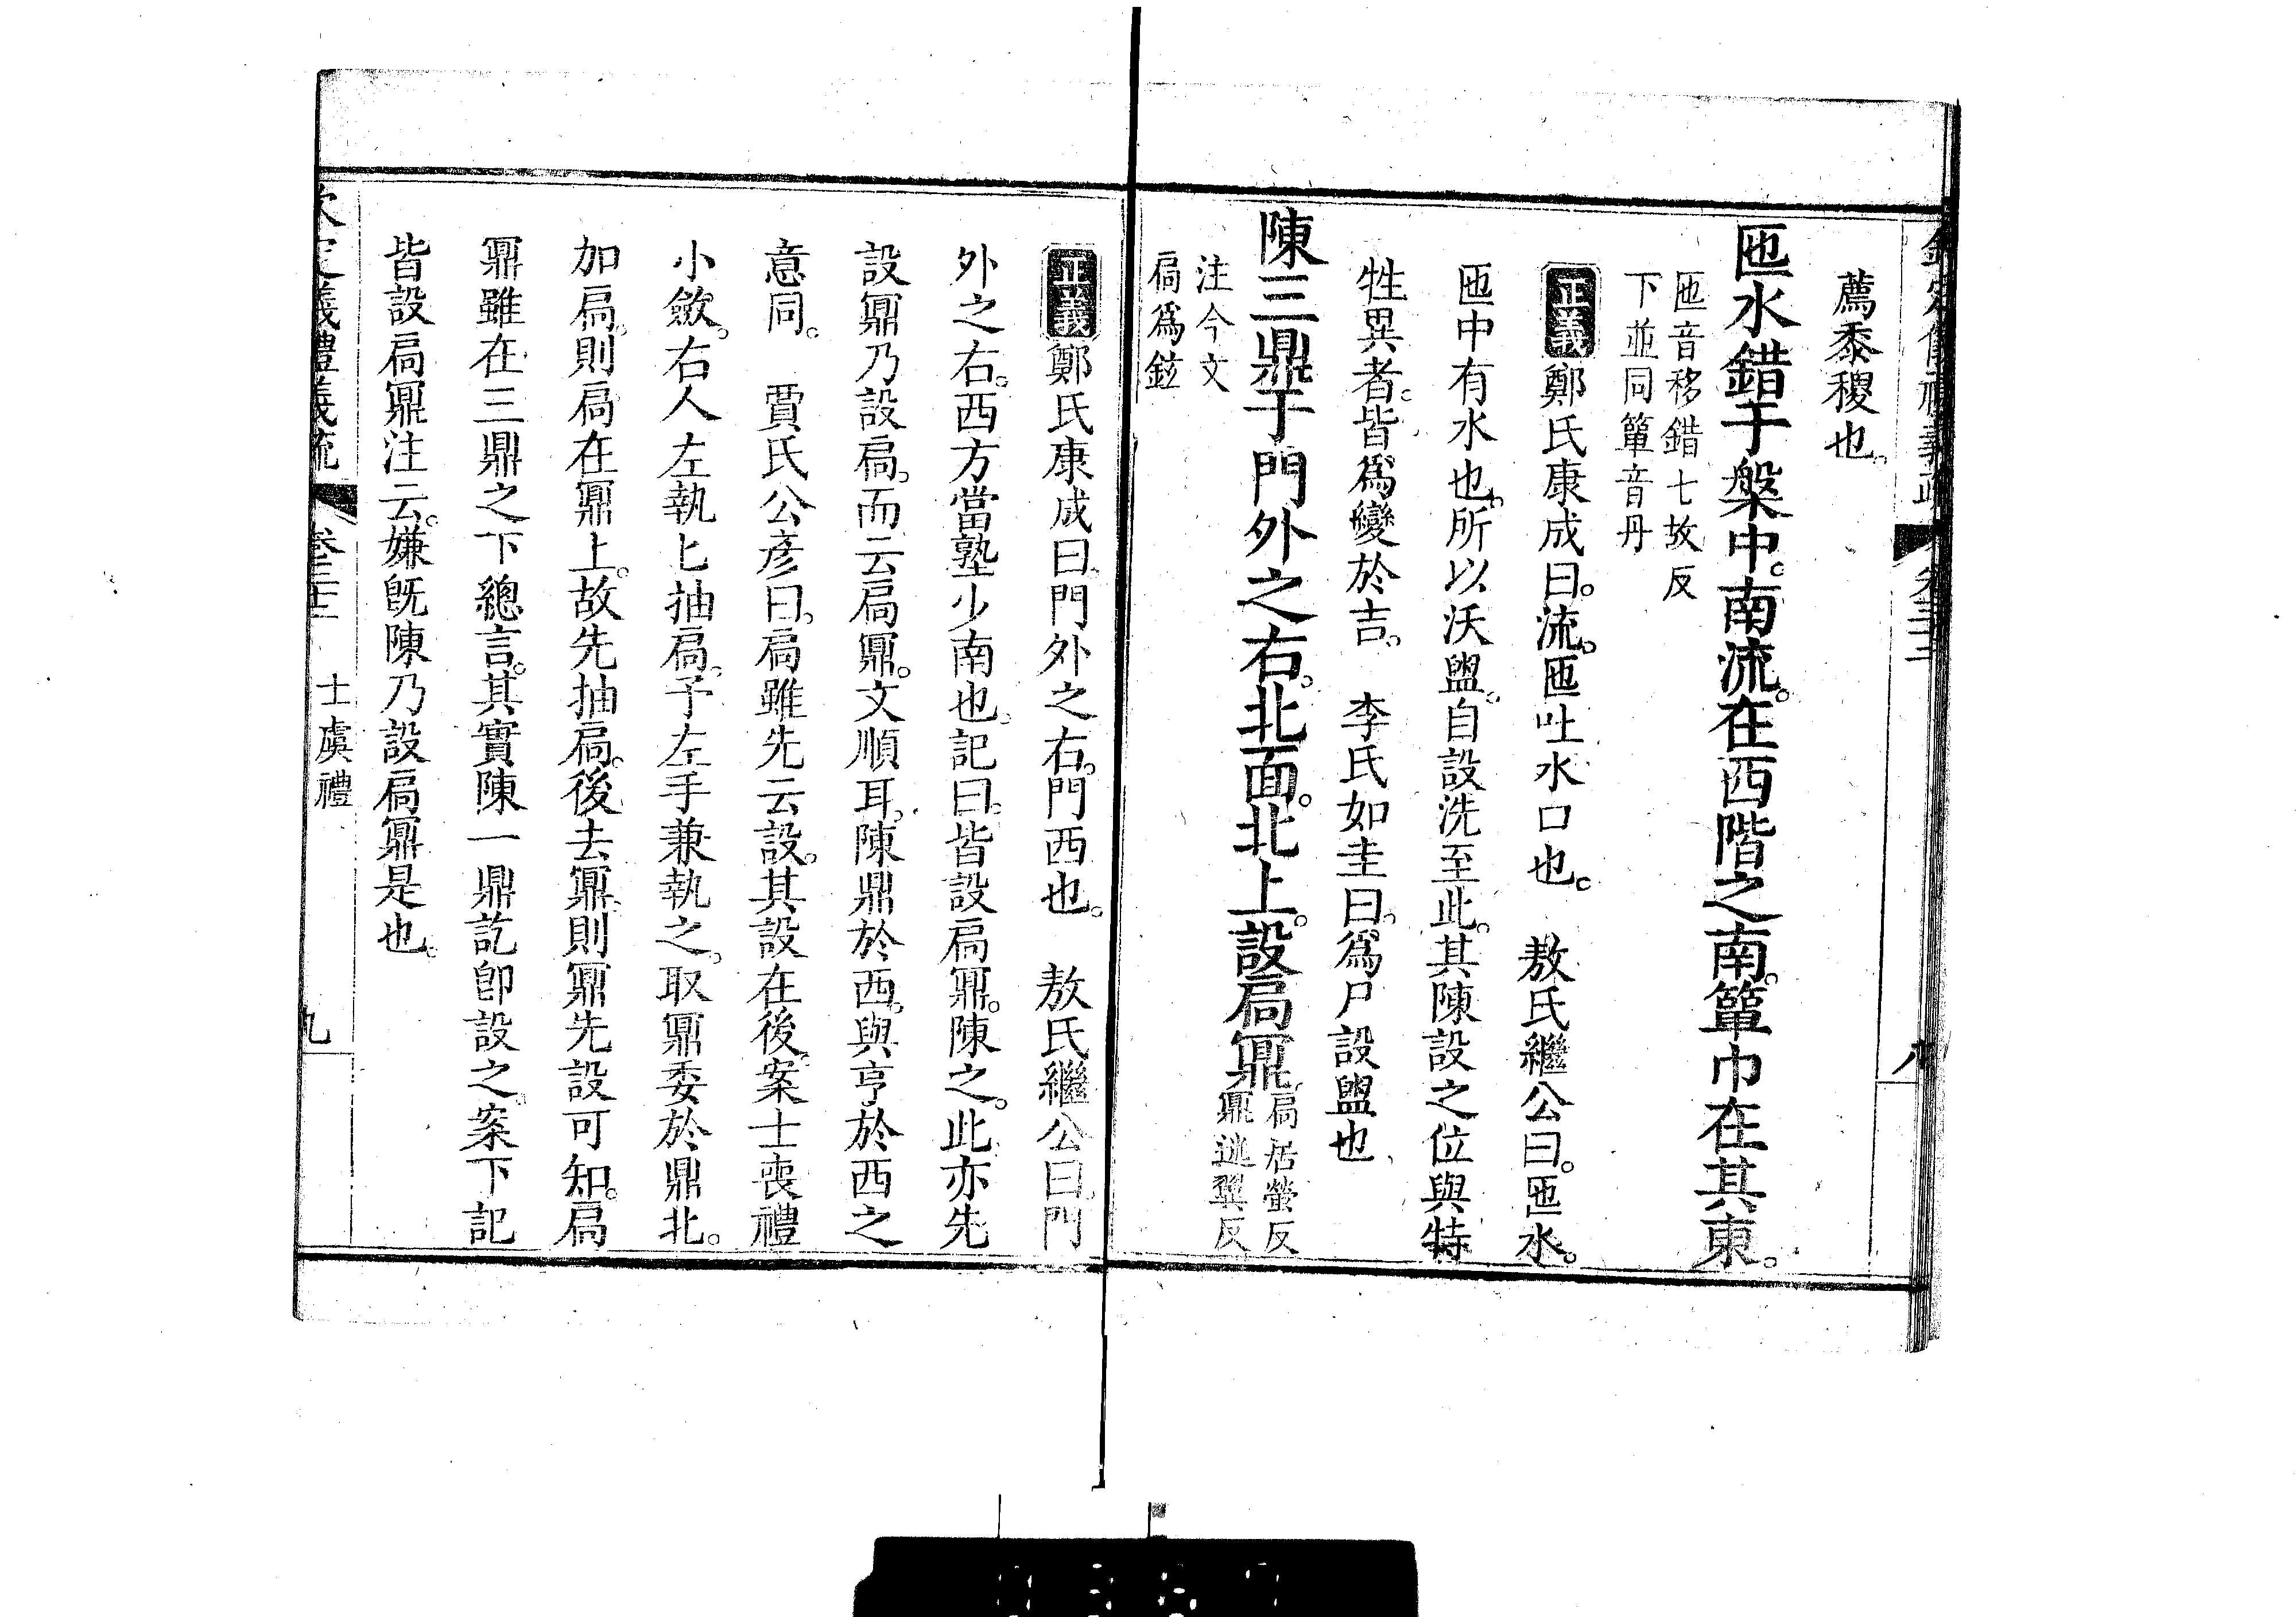 欽定儀禮義疏 卷三十二 八
薦黍稷也。
匜水錯于槃中。南流。在西階之南。簞巾在其東。
匜音移錯七故反
下並同簞音丹
正義鄭氏康成曰。流。匜吐水口也。 敖氏繼公曰。匜水。
匜中有水也。所以沃盥。自設洗至此。其陳設之位與特
牲異者。皆爲變於吉。 李氏如圭曰。爲尸設盥也
陳三鼎于門外之右。北面。北上。設扃鼏
扃居螢反
鼏迷翼反
注今文
扃爲鉉
正義鄭氏康成曰。門外之右。門西也。 敖氏繼公曰。門
外之右。西方當塾少南也。記曰。皆設扃鼏。陳之。此亦先
設鼏乃設扃。而云扃鼏。文順耳。陳鼎於西。與亨於西之
意同。 賈氏公彦曰。扃雖先云設。其設在後。案士喪禮
小斂。右人左執匕抽扃。予左手兼執之。取鼏委於鼎北。
加扃。則扃在鼏上。故先抽扃。後去鼏。則鼏先設可知。扃
鼏雖在三鼎之下總言。其實陳一鼎訖卽設之。案下記
皆設扃鼏注云。嫌旣陳乃設扃鼏是也。
欽定儀禮義疏 卷三十二 士虞禮 九